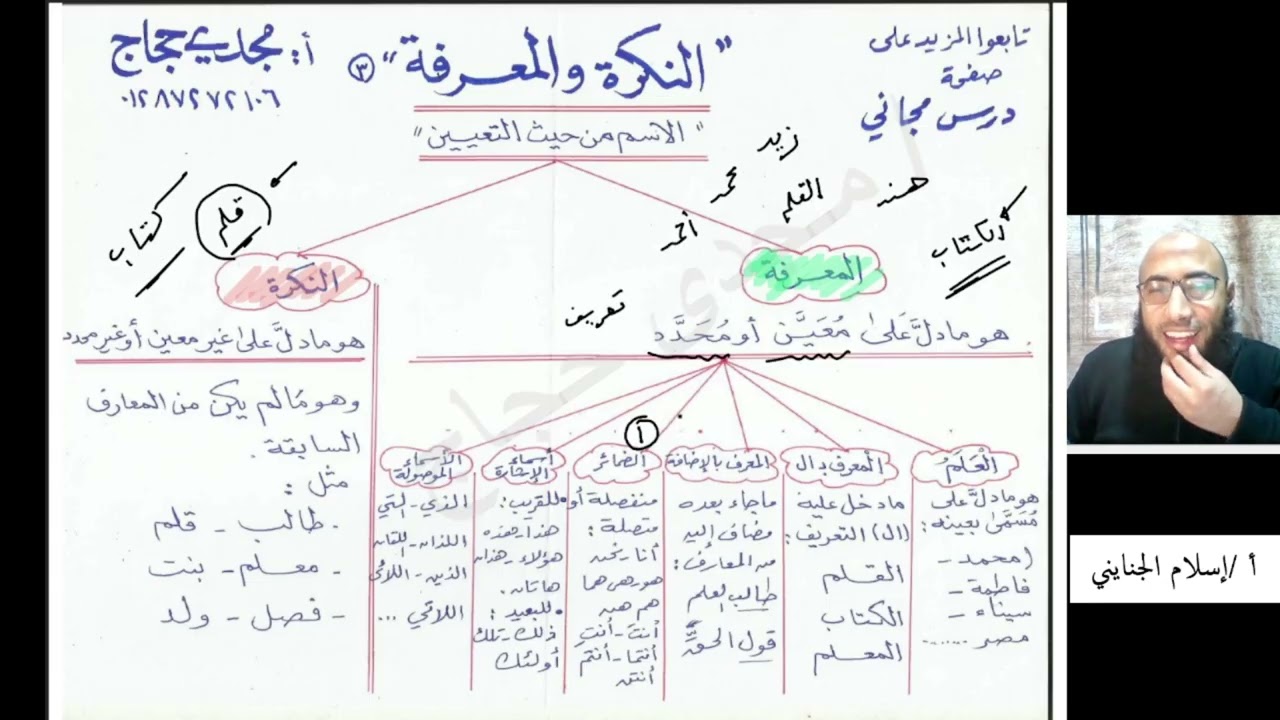 تابعوا المزيد على
صفحة
درس مجاني
"النكرة والمعرفة" ٣
أ: مجدي حجاج
٠١٢٨٧٢٧٢١٠٦
"الاسم من حيث التعيين"
زيد
محمد
القلم
هند
أحمد
الكتاب
قلم
كتاب
المعرفة
تعريف
هو ما دلَّ عَلَىٰ مُعَيَّن أو مُحَدَّد
أ
العَلَمُ
هو ما دلَّ على
مُسَمًّى بعينه:
(محمد -
فاطمة -
سيناء -
مصر ......
المعرف بـ ال
ما دخل عليه
(ال) التعريف:
القلم
الكتاب
المعلم
المعرف بالإضافة
ما جاء بعده
مضاف إليه
من المعارف:
طالب العلم
قول الحقِّ
الضمائر
منفصلة أو
متصلة:
أنا - نحن
هو - هي - هما
هم - هن
أنتَ - أنتِ
أنتما - أنتم
أنتن
أسماء الإشارة
• للقريب:
هذا - هذه
هؤلاء - هذان
هاتان.
• للبعيد:
ذلك - تلك
أولئك
الأسماء الموصولة
الذي - التي
اللذان - اللتان
الذين - اللائي
اللاتي ...
النكرة
هو ما دلَّ على غير معين أو غير محدد
وهو ما لم يكن من المعارف
السابقة.
مثل:
طالب - قلم
- معلم - بنت
- فصل - ولد
أ / إسلام الجنايني
مجدي حجاج